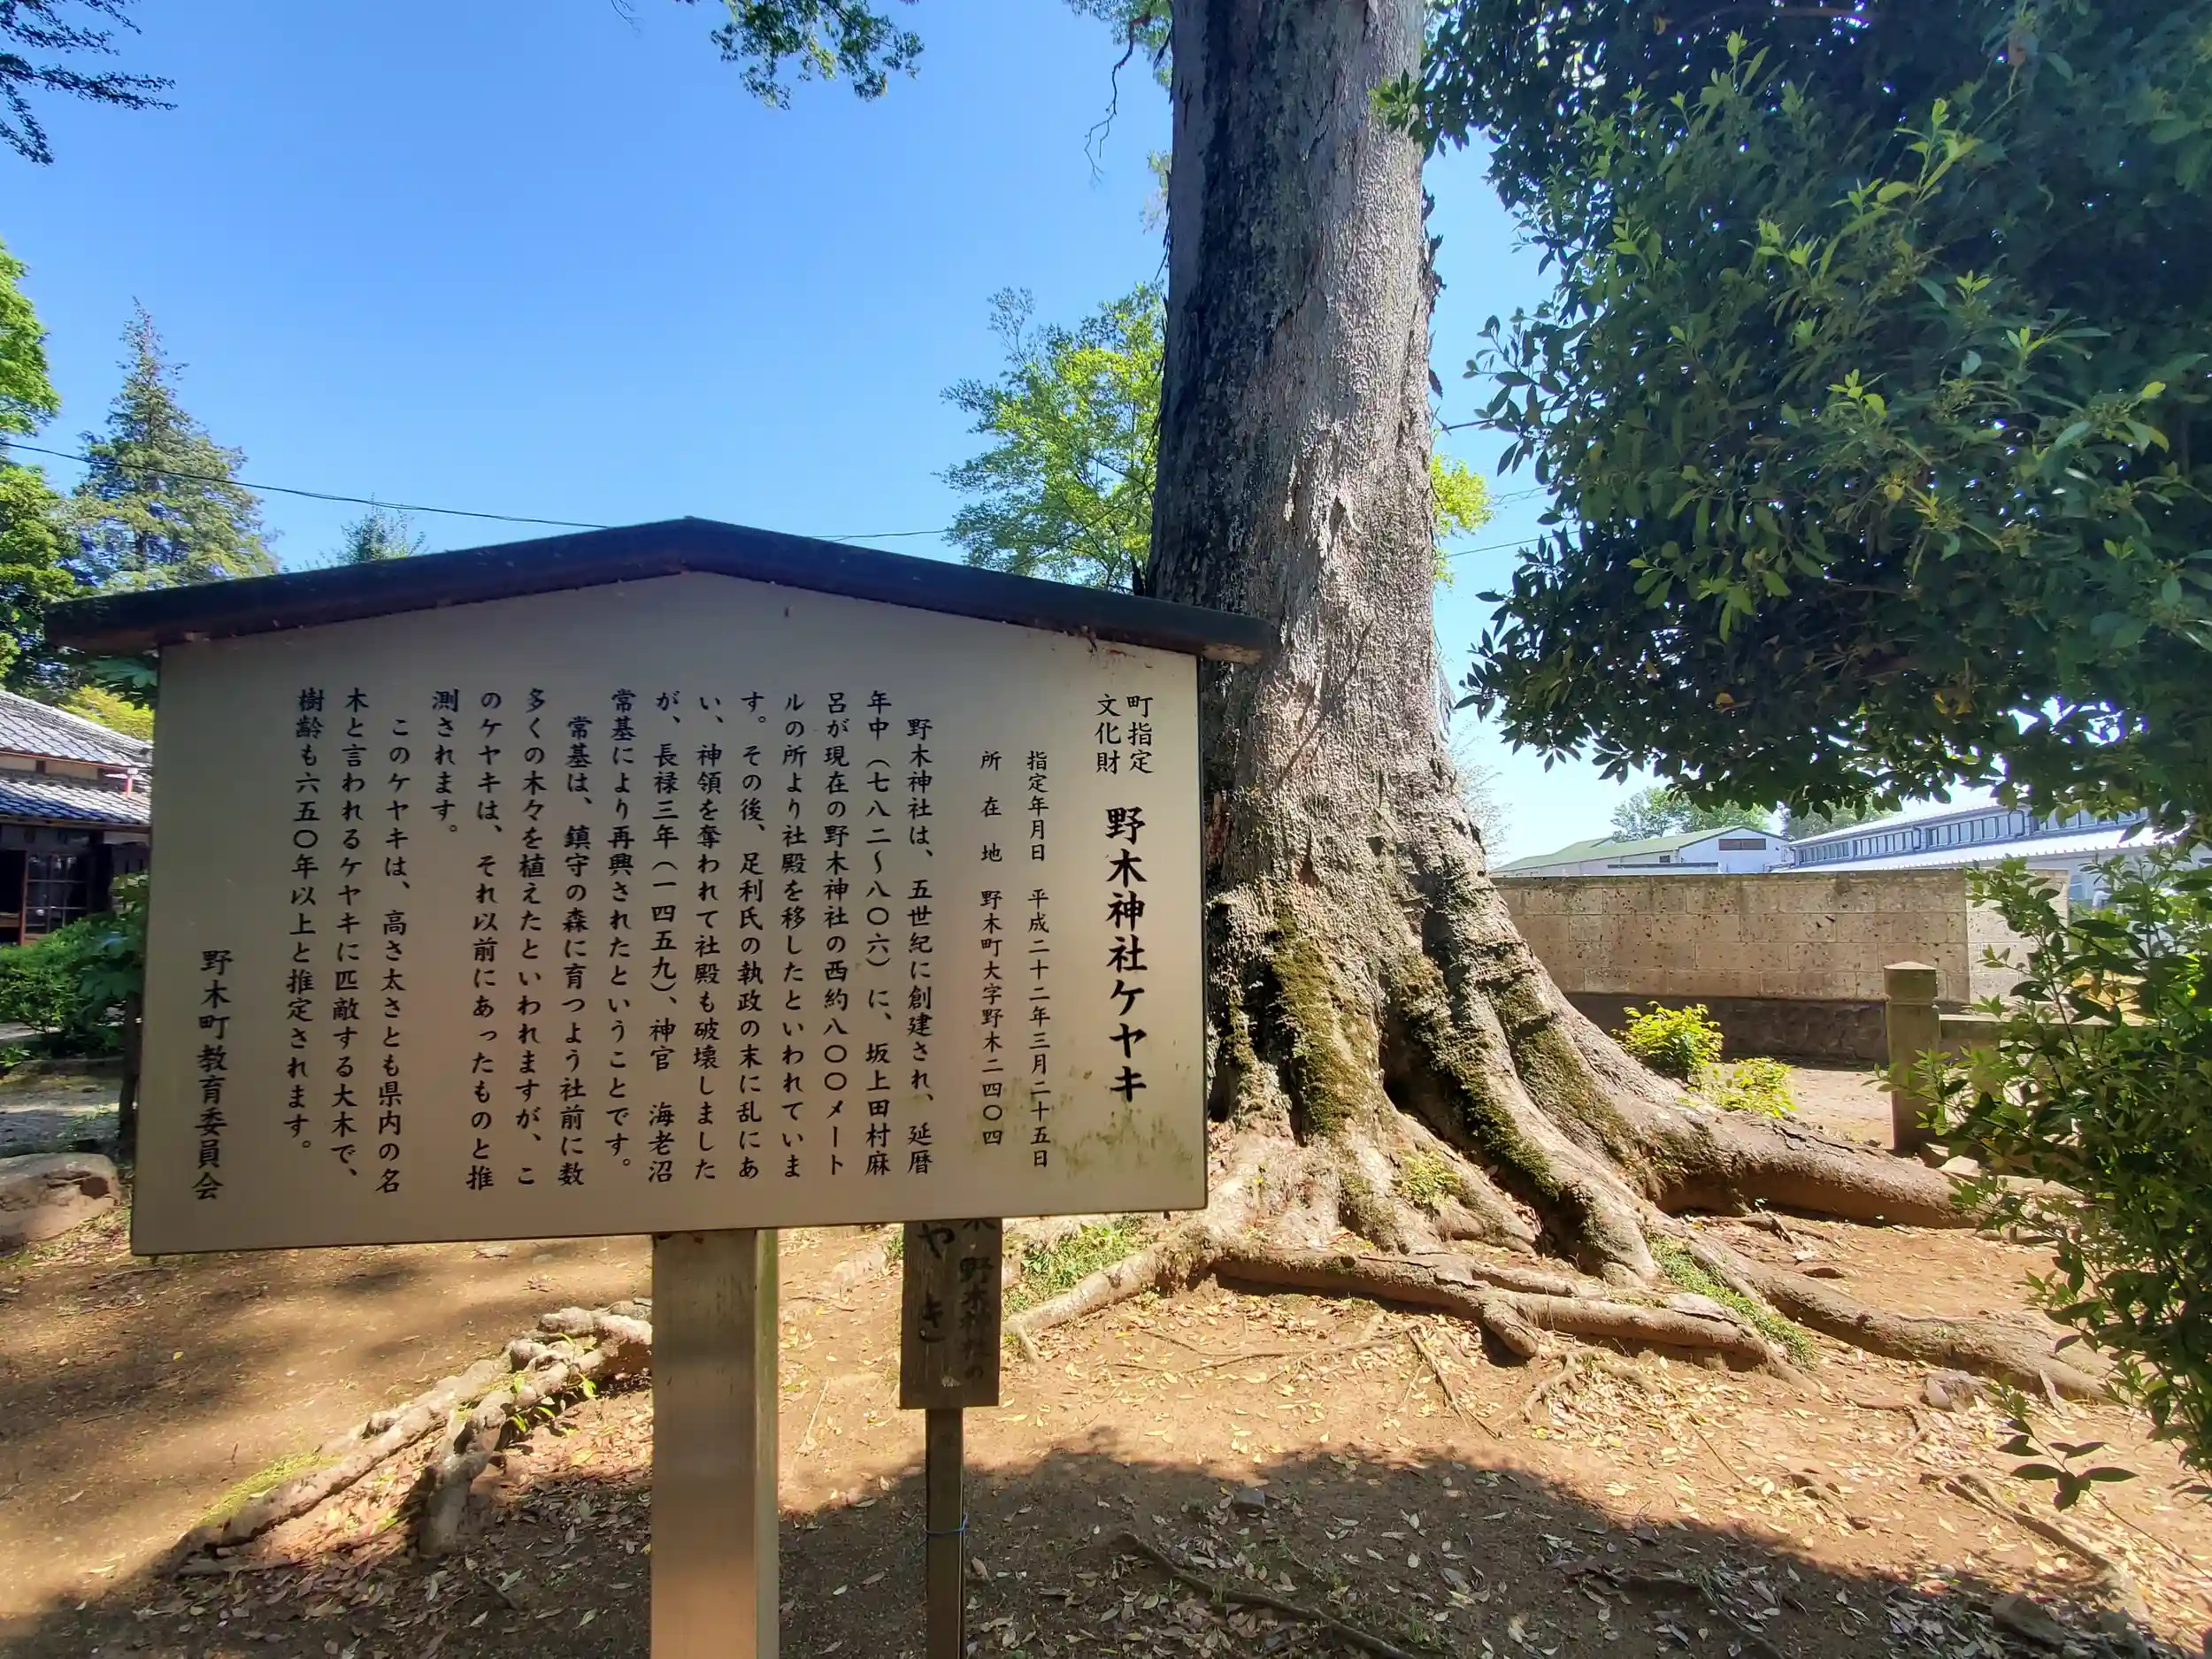 町指定
文化財
野木神社ケヤキ
指定年月日　平成二十二年三月二十五日
所在地　野木町大字野木二四〇四
野木神社は、五世紀に創建され、延暦
年中（七八二～八〇六）に、坂上田村麻
呂が現在の野木神社の西約八〇〇メート
ルの所より社殿を移したといわれていま
す。その後、足利氏の執政の末に乱にあ
い、神領を奪われて社殿も破壊しました
が、長禄三年（一四五九）、神官　海老沼
常基により再興されたということです。
常基は、鎮守の森に育つよう社前に数
多くの木々を植えたといわれますが、こ
のケヤキは、それ以前にあったものと推
測されます。
このケヤキは、高さ太さとも県内の名
木と言われるケヤキに匹敵する大木で、
樹齢も六五〇年以上と推定されます。
野木町教育委員会
木　野木神社の
やき